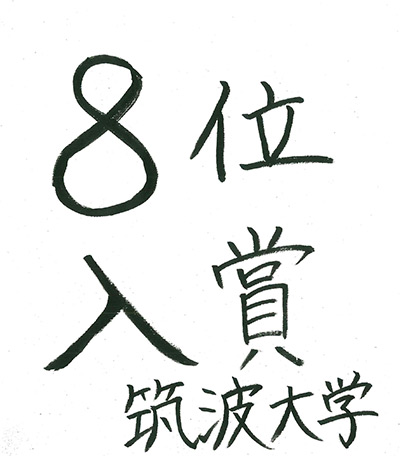 8位
入賞
筑波大学